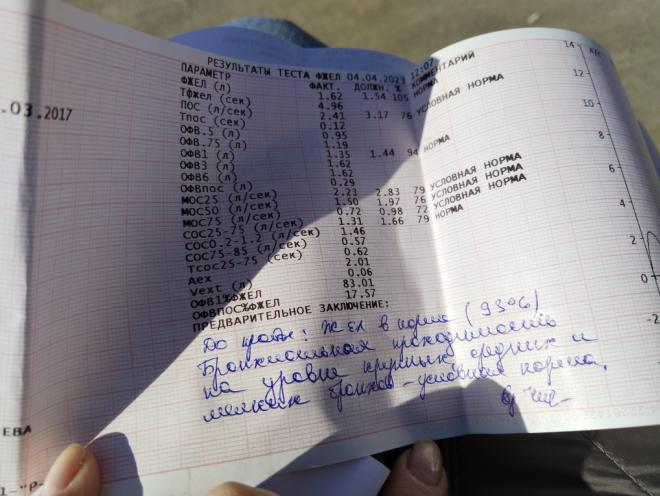 .03.2017
РЕЗУЛЬТАТЫ ТЕСТА ФЖЕЛ 04.04.2023 12:07
ПАРАМЕТР ФАКТ. ДОЛЖН. % КОММЕНТАРИЙ
ФЖЕЛ (л) 1.62 1.54 105 НОРМА
Тфжел (сек) 4.96
ПОС (л/сек) 2.41 3.17 76 УСЛОВНАЯ НОРМА
Тпос (сек) 0.12
ОФВ.5 (л) 0.95
ОФВ.75 (л) 1.19
ОФВ1 (л) 1.35 1.44 94 НОРМА
ОФВ3 (л) 1.62
ОФВ6 (л) 1.62
ОФВпос (л) 0.29
МОС25 (л/сек) 2.23 2.83 79 УСЛОВНАЯ НОРМА
МОС50 (л/сек) 1.50 1.97 76 УСЛОВНАЯ НОРМА
МОС75 (л/сек) 0.72 0.98 72 УСЛОВНАЯ НОРМА
СОС25-75 (л/сек) 1.31 1.66 79 НОРМА
СОС0.2-1.2 (л/сек) 1.46
СОС75-85 (л/сек) 0.57
Тсос25-75 (сек) 0.62
Аех 2.01
Vext (л) 0.06
ОФВ1%ФЖЕЛ 83.01
ОФВПОС%ФЖЕЛ 17.57
ПРЕДВАРИТЕЛЬНОЕ ЗАКЛЮЧЕНИЕ:
До пробы: ЖЕЛ в норме (93%)
Бронхиальная проходимость
на уровне крупных, средних и
мелких бронхов - условная норма.
ЕВА
14 л/с
12
10
8
6
4
2
0
-2